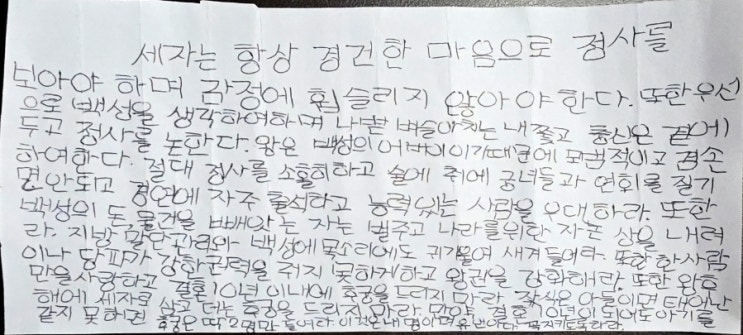 세자는 항상 경건한 마음으로 정사를
보아야 하며 감정에 휩슬리지 않아야 한다. 또한 우선
으로 백성을 생각하여하며 나쁜 벼슬아치는 내쫓고 충신은 곁에
두고 정사를 논한다. 왕은 백성의 어버이이기때문에 모범적이고 겸손
하여한다. 절대 정사를 소홀히하고 술에 취에 궁녀들과 연회를 즐기
면안되고 경연에 자주 출석하고 능력있는 사람을 우대하라. 또한
백성의 돈, 물건을 빼앗는 자는 벌주고 나라를위한 자는 상을 내려
라. 지방 말단관리와 백성에 목소리에도 귀기울여 새겨들어라. 또한 한사람
이나 당파가 강한권력을 쥐지 못하게하고 왕권을 강화해라. 또한 왕후
만을사랑하고 결혼10년이내에 후궁을 드리지 말라. 자식은 아들이면 태어난
해에 세자로 삼고 더는 후궁을 드리지 말라. 만약 결혼 10년이 되어도 아기를
같지 못하면 후궁은 딱 2명만 들여라. 이것은 내 명이자